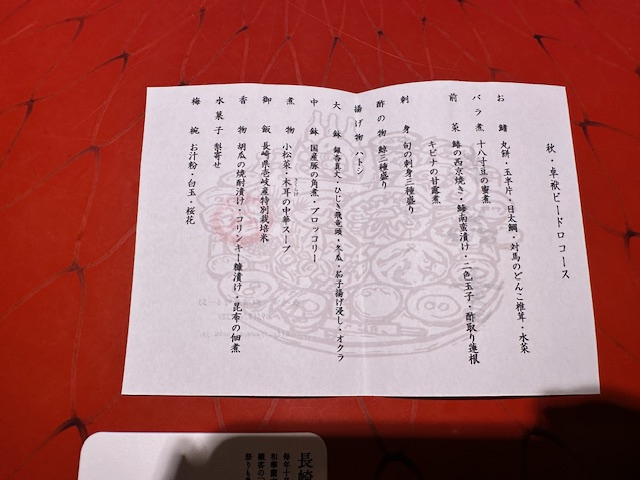 秋・卓袱ビードロコース
お鰭　丸餅・玉子片・目太鯛・対馬のどんこ椎茸・水菜
バラ煮　十八寸豆の蜜煮
前菜　鰆の西京焼き・鯵南蛮漬け・二色玉子・酢取り蓮根
キビナの甘露煮
刺身　旬の刺身三種盛り
酢の物　鯨三種盛り
揚げ物　ハトシ
大鉢　銀杏真丈・ひじき飛竜頭・冬瓜・茄子揚げ浸し・オクラ
中鉢　国産豚の角煮・ブロッコリー
煮物　小松菜・木耳の中華スープ
御飯　長崎県壱岐産特別栽培米
香物　胡瓜の焼酎漬け・コリンキー糠漬け・昆布の佃煮
水菓子　梨寄せ
梅椀　お汁粉・白玉・桜花
長崎
毎年十
和華蘭
顧客の
祭りも